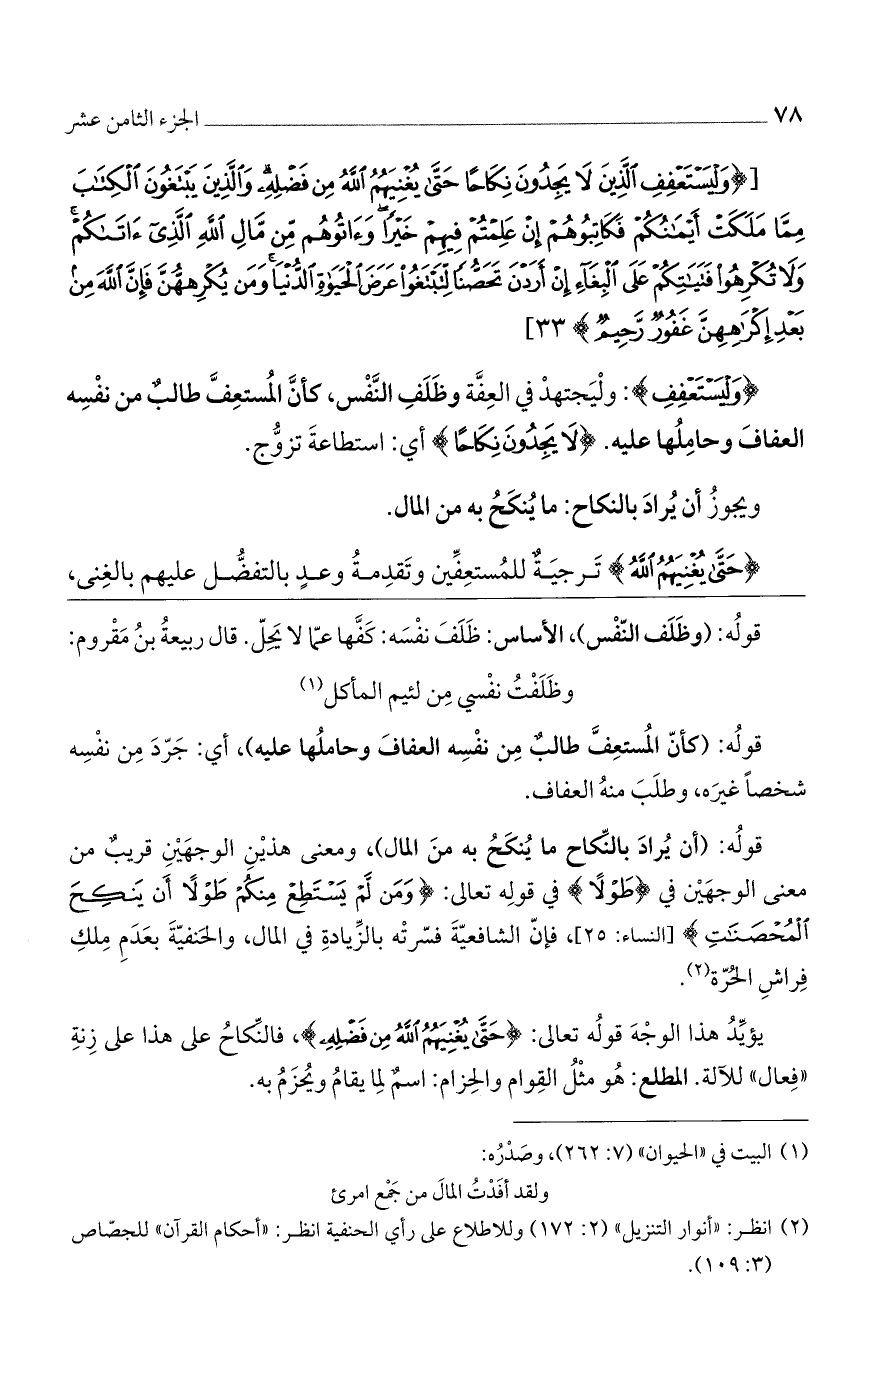 ٧٨ ــــــــــــــــــــ الجزء الثامن عشر
[﴿وَلْيَسْتَعْفِفِ ٱلَّذِينَ لَا يَجِدُونَ نِكَاحًا حَتَّىٰ يُغْنِيَهُمُ ٱللَّهُ مِن فَضْلِهِۦ ۗ وَٱلَّذِينَ يَبْتَغُونَ ٱلْكِتَٰبَ
مِمَّا مَلَكَتْ أَيْمَٰنُكُمْ فَكَاتِبُوهُمْ إِنْ عَلِمْتُمْ فِيهِمْ خَيْرًا ۖ وَءَاتُوهُم مِّن مَّالِ ٱللَّهِ ٱلَّذِىٓ ءَاتَىٰكُمْ ۚ
وَلَا تُكْرِهُوا۟ فَتَيَٰتِكُمْ عَلَى ٱلْبِغَآءِ إِنْ أَرَدْنَ تَحَصُّنًا لِّتَبْتَغُوا۟ عَرَضَ ٱلْحَيَوٰةِ ٱلدُّنْيَا ۚ وَمَن يُكْرِههُّنَّ فَإِنَّ ٱللَّهَ مِنۢ
بَعْدِ إِكْرَٰهِهِنَّ غَفُورٌ رَّحِيمٌ﴾ ٣٣]
﴿وَلْيَسْتَعْفِفِ﴾: ولْيَجتهدْ في العِفَّة وظَلَفِ النَّفْس، كأنَّ المُستعِفَّ طالبٌ من نفْسِه
العفافَ وحامِلُها عليه. ﴿لَا يَجِدُونَ نِكَاحًا﴾ أي: استطاعةَ تزوُّج.
ويجوزُ أن يُرادَ بالنكاح: ما يُنكَحُ به من المال.
﴿حَتَّىٰ يُغْنِيَهُمُ ٱللَّهُ﴾ تَرجيَةٌ للمُستعفِّين وتَقدِمةُ وعدٍ بالتفضُّل عليهم بالغِنى،
قولُه: (وظَلَف النّفْس)، الأساس: ظَلَفَ نفْسَه: كَفَّها عمّا لا يَحِلّ. قال ربيعةُ بنُ مَقْروم:
وظَلَفْتُ نفْسي مِن لئيم المأكل(١)
قولُه: (كأنّ المُستعِفَّ طالبٌ مِن نفْسِه العفافَ وحاملُها عليه)، أي: جَرّدَ مِن نفْسِه
شخصاً غيرَه، وطلَبَ منهُ العفاف.
قولُه: (أن يُرادَ بالنِّكاح ما يُنكَحُ به منَ المال)، ومعنى هذيْنِ الوجهَيْنِ قريبٌ من
معنى الوجهَيْن في ﴿طَوْلًا﴾ في قولِه تعالى: ﴿وَمَن لَّمْ يَسْتَطِعْ مِنكُمْ طَوْلًا أَن يَنكِحَ
ٱلْمُحْصَنَٰتِ﴾ [النساء: ٢٥]، فإنّ الشافعيّةَ فسّرتْه بالزِّيادةِ في المال، والحَنفيّةَ بعَدَمِ مِلكِ
فِراشِ الحُرّة(٢).
يؤيِّدُ هذا الوجْهَ قولُه تعالى: ﴿حَتَّىٰ يُغْنِيَهُمُ ٱللَّهُ مِن فَضْلِهِۦ﴾، فالنِّكاحُ على هذا على زِنةِ
«فِعال» للآلة. المطلع: هُو مثْلُ القِوام والحِزام: اسمٌ لِما يقامُ ويُحزَمُ به.
(١) البيت في «الحيوان» (٧: ٢٦٢)، وصَدْرُه:
ولقد أفَدْتُ المالَ من جَمْع امرئ
(٢) انظر: «أنوار التنزيل» (٢: ١٧٢) وللاطلاع على رأي الحنفية انظر: «أحكام القرآن» للجصّاص
(٣: ١٠٩).